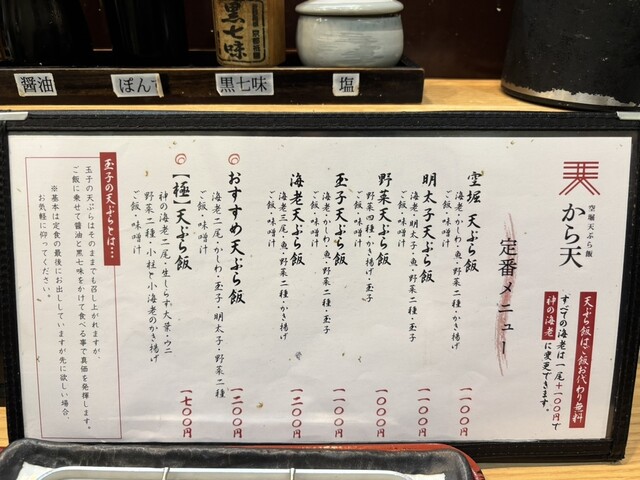 醤油
ぽん
黒七味
黒七味
塩
天
空堀天ぷら飯
から天
天ぷら飯はご飯お代わり無料
すべての海老は一尾+一〇〇円で
神の海老に変更できます。
定番メニュー
空堀 天ぷら飯
海老・かしわ・魚・野菜二種・かき揚げ
ご飯・味噌汁
一一〇〇円
明太子天ぷら飯
海老・明太子・魚・野菜二種・玉子
ご飯・味噌汁
一一〇〇円
野菜天ぷら飯
野菜四種・かき揚げ・玉子
ご飯・味噌汁
一〇〇〇円
玉子天ぷら飯
海老・かしわ・魚・野菜二種・玉子
ご飯・味噌汁
一一〇〇円
海老天ぷら飯
海老三尾・魚・野菜二種・かき揚げ
ご飯・味噌汁
一二〇〇円
おすすめ天ぷら飯
海老二尾・かしわ・玉子・明太子・野菜二種
ご飯・味噌汁
一二〇〇円
【極】天ぷら飯
神の海老二尾・生しらす大葉・ウニ
野菜二種・小柱と小海老のかき揚げ
ご飯・味噌汁
一七〇〇円
玉子の天ぷらとは…
玉子の天ぷらはそのままでも召し上がれますが、
ご飯に乗せて醤油と黒七味をかけて食べる事で真価を発揮します。
※基本は定食の最後にお出ししていますが先に欲しい場合、
お気軽に仰ってください。